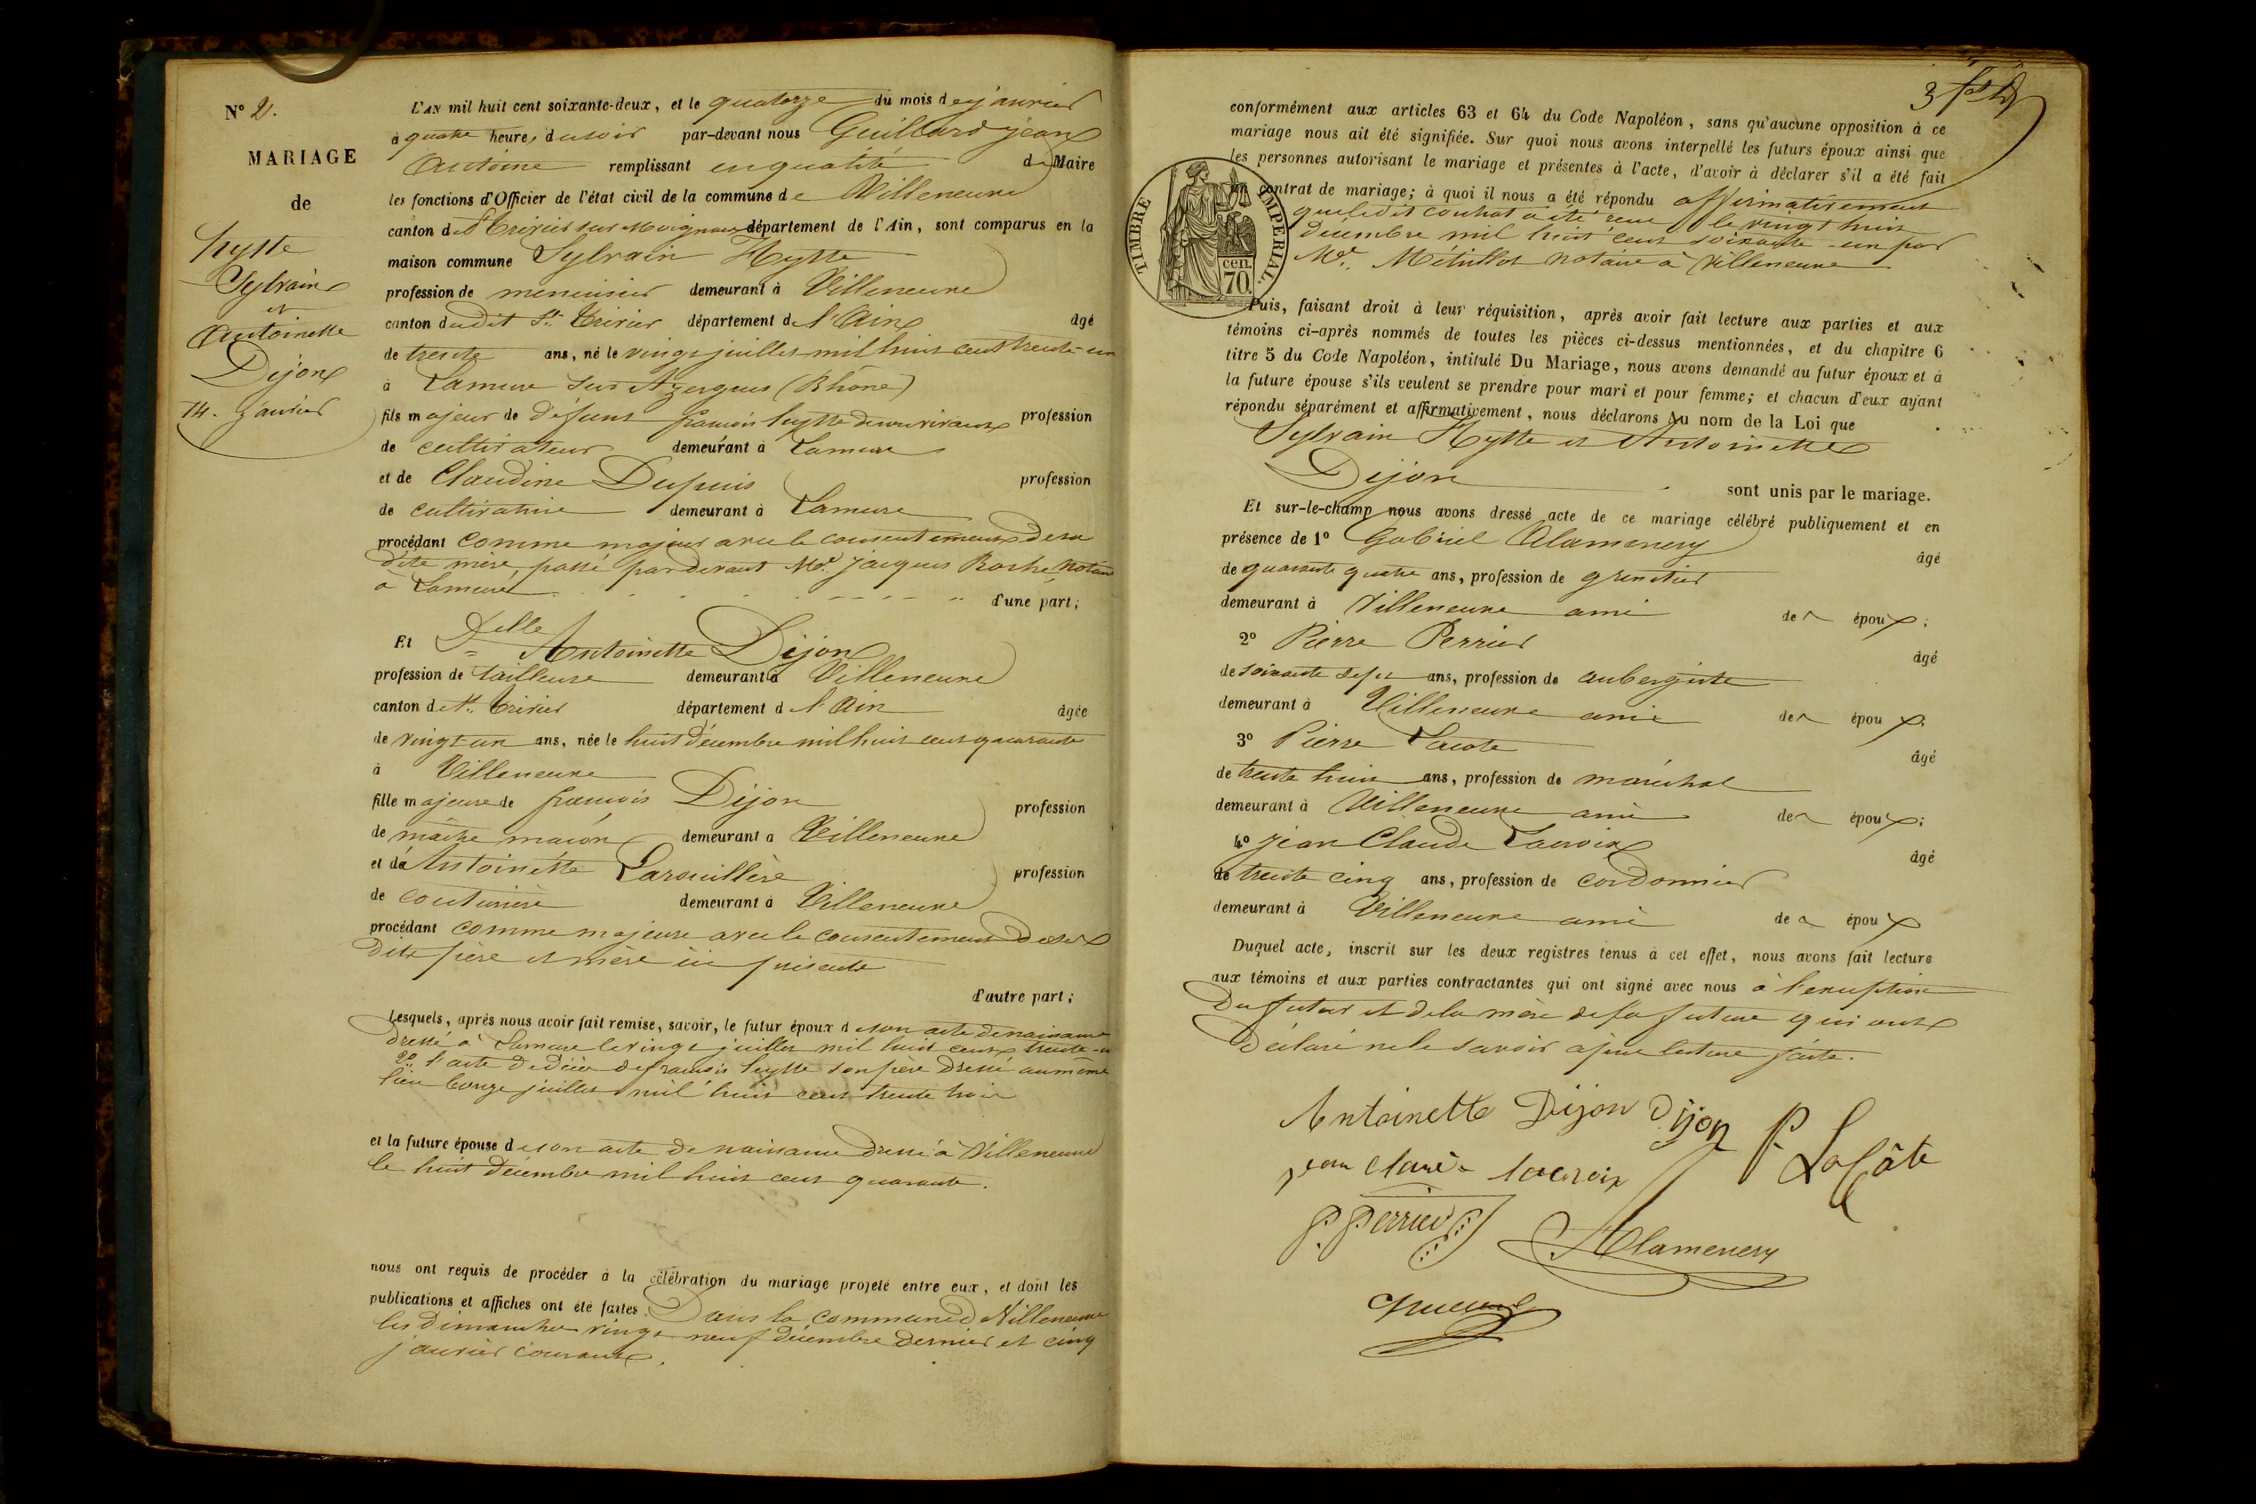 N° 2.
MARIAGE
de
hytte
Sylvain
et
Antoinette
Dijon
14. janvier
L'AN mil huit cent soixante-deux, et le quatorze du mois de janvier
à quatre heures du soir par-devant nous Guillard jean
Antoine remplissant en qualité de Maire
les fonctions d'Officier de l'état civil de la commune de Villeneuve
canton de St Trivier sur Moignans département de l'Ain, sont comparus en la
maison commune Sylvain Hytte
profession de menuisier demeurant à Villeneuve
canton dudit St. Trivier département de l'Ain âgé
de trente ans, né le vingt juillet mil huit cent trente-un
à Lamure sur Azergues (Rhône)
fils majeur de défunt francois hytte de son vivant profession
de cultivateur demeurant à Lamure
et de Claudine Dupuis profession
de cultivatrice demeurant à Lamure
procédant comme majeur avec le consentement de sa
dite mère, passé pardevant Me. Jacques Roche Notaire
à Lamure
d'une part;
Et Delle Antoinette Dijon
profession de tailleuse demeurant à Villeneuve
canton de St. Trivier département de l'Ain âgée
de vingt-un ans, née le huit Décembre mil huit cent quarante
à Villeneuve
fille majeure de francois Dijon profession
de maître macon demeurant à Villeneuve
et de Antoinette profession
de couturière demeurant à Villeneuve
procédant comme majeure avec le consentement de ses
dits père et mère ici présents
d'autre part;
Lesquels, après nous avoir fait remise, savoir, le futur époux de son acte de naissance
Dressé à Lamure le vingt juillet mil huit cent trente-un
2° l'acte de décès de francois hytte son père Dressé au même
lieu juillet mil huit cent trente trois
et la future épouse de son acte de naissance Dressé à Villeneuve
le huit Décembre mil huit cent quarante.
nous ont requis de procéder à la célébration du mariage projeté entre eux, et dont les
publications et affiches ont été faites. Dans la commune de Villeneuve
les Dimanches vingt neuf décembre dernier et cinq
janvier courant.
3
conformément aux articles 63 et 64 du Code Napoléon, sans qu'aucune opposition à ce
mariage nous ait été signifiée. Sur quoi nous avons interpellé les futurs époux ainsi que
les personnes autorisant le mariage et présentes à l'acte, d'avoir à déclarer s'il a été fait
contrat de mariage; à quoi il nous a été répondu affirmativement
que ledit contrat a été recu le vingt huit
décembre mil huit cent soixante-un par
Me. notaire à Villeneuve
TIMBRE IMPERIAL.
70 cen.
Puis, faisant droit à leur réquisition, après avoir fait lecture aux parties et aux
témoins ci-après nommés de toutes les pièces ci-dessus mentionnées, et du chapitre 6
titre 5 du Code Napoléon, intitulé Du Mariage, nous avons demandé au futur époux et à
la future épouse s'ils veulent se prendre pour mari et pour femme; et chacun d'eux ayant
répondu séparément et affirmativement, nous déclarons Au nom de la Loi que
Sylvain Hytte et Antoinette
Dijon
sont unis par le mariage.
Et sur-le-champ nous avons dressé acte de ce mariage célébré publiquement et en
présence de 1° Gabriel Alamenery âgé
de quarante quatre ans, profession de grenetier
demeurant à Villeneuve ami des époux;
2° Pierre Perrier âgé
de soixante sept ans, profession de aubergiste
demeurant à Villeneuve ami des époux.
3° Pierre Lacote âgé
de trente huit ans, profession de maréchal
demeurant à Villeneuve ami des époux;
4° jean Claude Lacroix âgé
de trente cinq ans, profession de cordonnier
demeurant à Villeneuve ami des époux
Duquel acte, inscrit sur les deux registres tenus à cet effet, nous avons fait lecture
aux témoins et aux parties contractantes qui ont signé avec nous à l'exception
Du futur et de la mère de la future qui ont
Déclaré ne le savoir après lecture faite.
Antoinette Dijon Dijon P. LaCôte
jean claude lacroix
P. Perrier
Alamenery